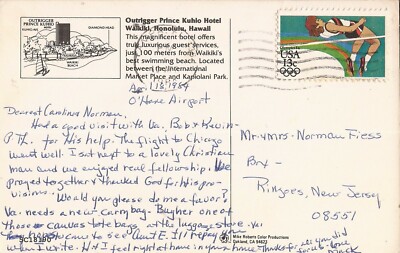 OUTRIGGER
PRINCE KUHIO
DIAMOND HEAD
KUHIO AVE
WAIKIKI
BEACH
Outrigger Prince Kuhio Hotel
Waikiki, Honolulu, Hawaii
This magnificent hotel offers
truly luxurious guest services,
just 100 meters from Waikiki's
best swimming beach. Located
between the International
Market Place and Kapiolani Park.
Apr. 18, 1984
O'Hare Airport
Dearest Carol and Norman,
Had a good visit with Va. Bob & Kevin.
P.Th. for His help. The flight to Chicago
went well. I sat next to a lovely Christian
man and we enjoyed real fellowship. We
prayed together & thanked God for His pro-
visions.
Would you please do me a favor?
Va. needs a new carry bag. Buy her one of
those canvas tote bags at the luggage store. Va.
hopes to see Aunt E. I'll repay you
when I write. H & I feel right at home in your home. Thanks for all you did
for us. Love
Mack
Mr & Mrs - Norman Fiess
Box -
Ringoes, New Jersey
08551
USA
13c
SC18180
Mike Roberts Color Productions
Oakland, CA 94622